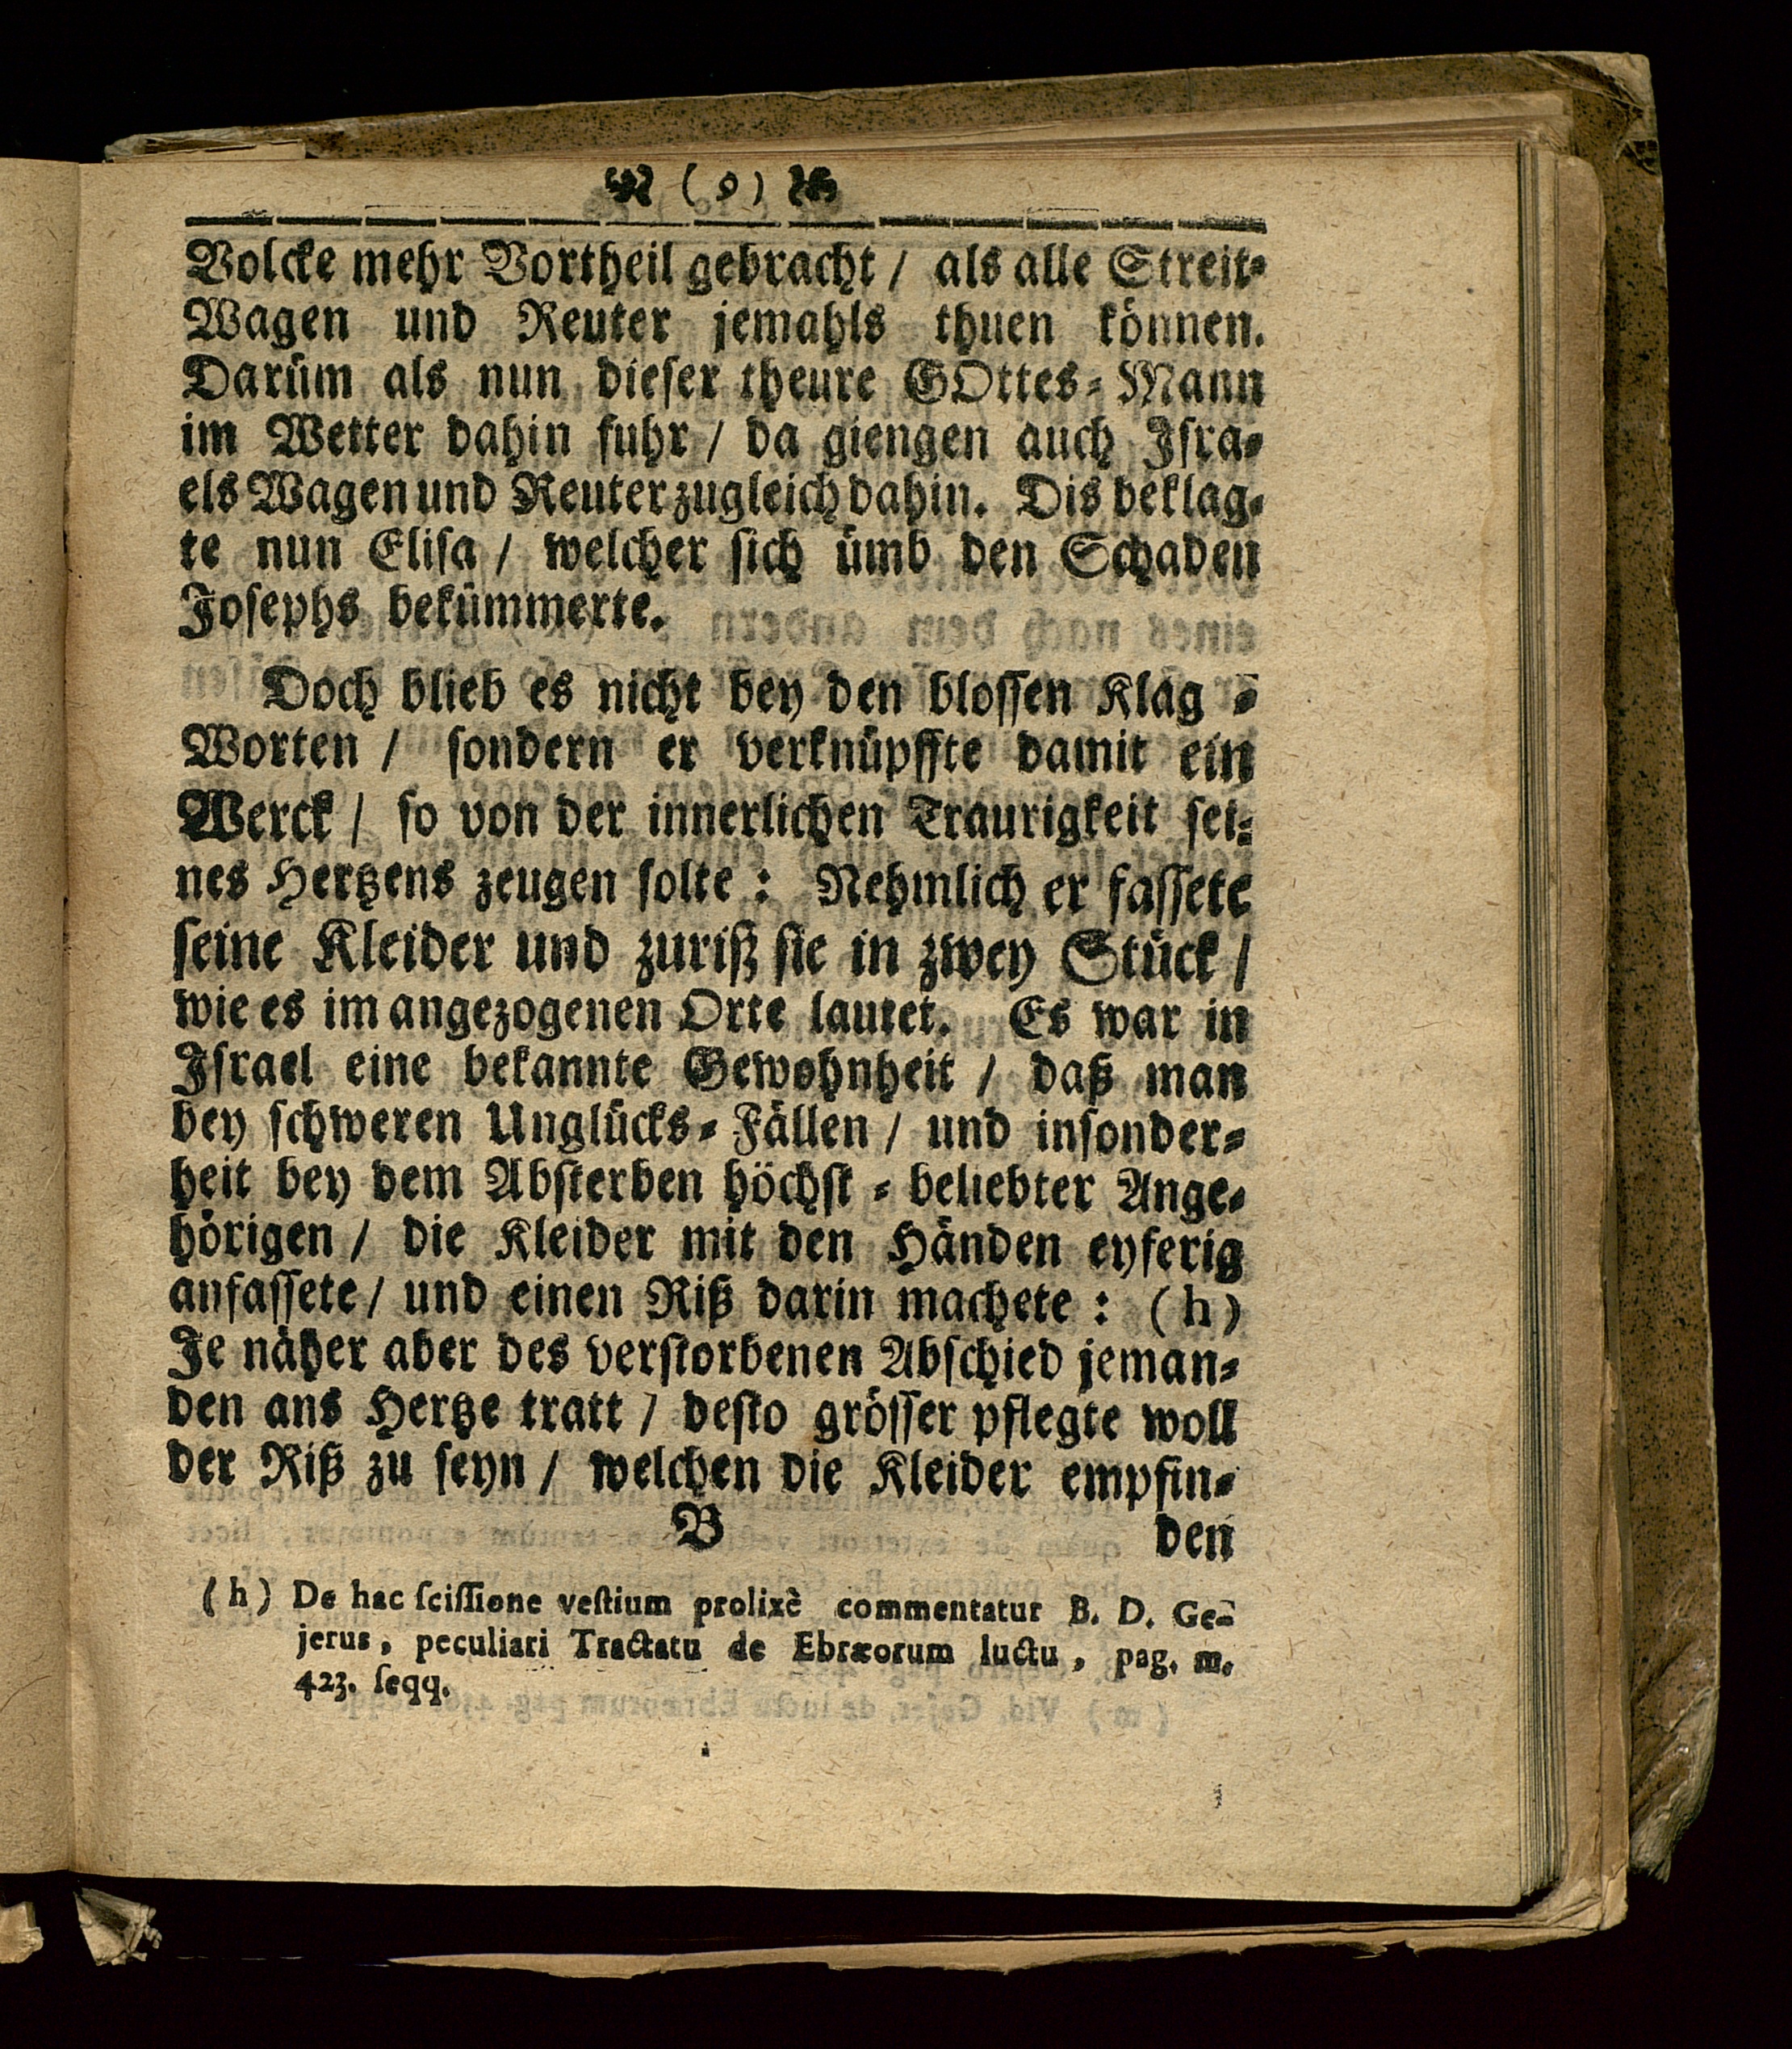 ( 9 )
Volcke mehr Vortheil gebracht / als alle Streit-
Wagen und Reuter jemahls thuen können.
Darüm als nun dieser theure GOttes-Mann
im Wetter dahin fuhr / da giengen auch Isra-
els Wagen und Reuter zugleich dahin. Dis beklag-
te nun Elisa / welcher sich ümb den Schaden
Josephs bekümmerte.
Doch blieb es nicht bey den blossen Klag-
Worten / sondern er verknüpffte damit ein
Werck / so von der innerlichen Traurigkeit sei-
nes Hertzens zeugen solte: Nehmlich er fassete
seine Kleider und zuriß sie in zwey Stück /
wie es im angezogenen Orte lautet. Es war in
Israel eine bekannte Gewohnheit / daß man
bey schweren Unglücks-Fällen / und insonder-
heit bey dem Absterben höchst-beliebter Ange-
hörigen / die Kleider mit den Händen eyferig
anfassete / und einen Riß darin machete: (h)
Je näher aber des verstorbenen Abschied jeman-
den ans Hertze tratt / desto grösser pflegte woll
der Riß zu seyn / welchen die Kleider empfin-
B den
(h) De hac ſciſſione veſtium prolixè commentatur B. D. Ge-
jerus, peculiari Tractatu de Ebræorum luctu, pag. m.
423. ſeqq.